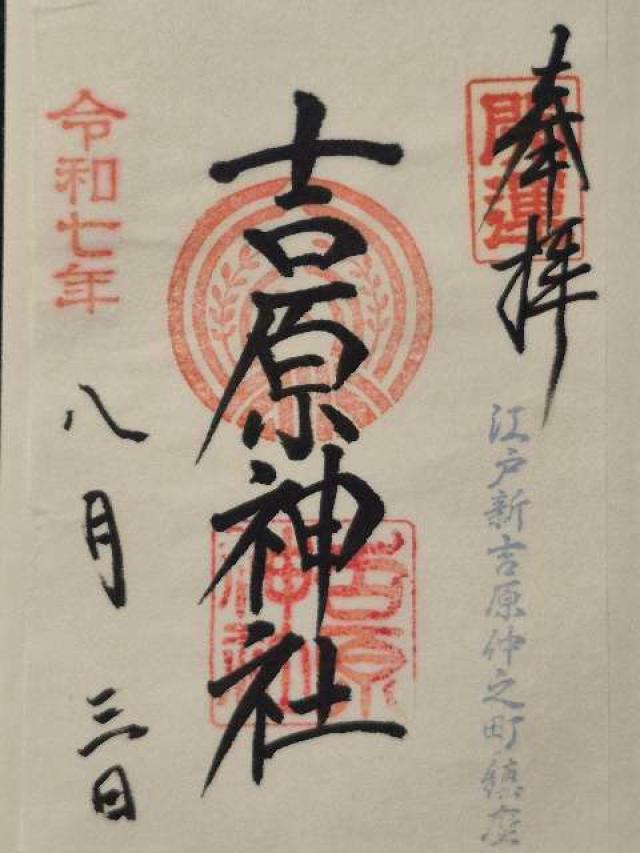 奉拝
開運
江戸新吉原仲之町鎮座
吉原神社
吉原神社
令和七年
八月三日